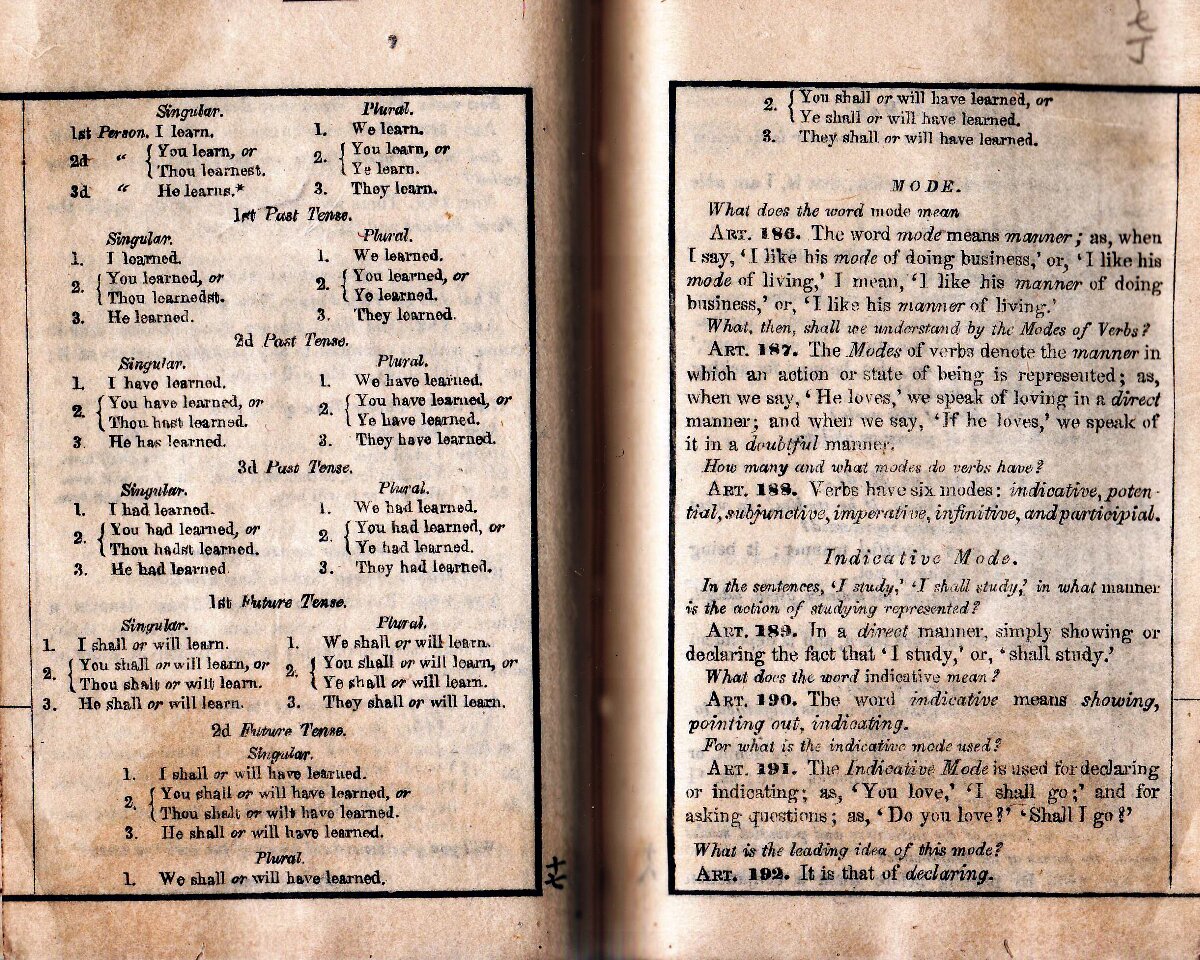 Singular. Plural.
1st Person. I learn. 1. We learn.
2d “ { You learn, or 2. { You learn, or
Thou learnest. Ye learn.
3d “ He learns.* 3. They learn.
1st Past Tense.
Singular. Plural.
1. I learned. 1. We learned.
2. { You learned, or 2. { You learned, or
Thou learnedst. Ye learned.
3. He learned. 3. They learned.
2d Past Tense.
Singular. Plural.
1. I have learned. 1. We have learned.
2. { You have learned, or 2. { You have learned, or
Thou hast learned. Ye have learned.
3. He has learned. 3. They have learned.
3d Past Tense.
Singular. Plural.
1. I had learned. 1. We had learned.
2. { You had learned, or 2. { You had learned, or
Thou hadst learned. Ye had learned.
3. He had learned 3. They had learned.
1st Future Tense.
Singular. Plural.
1. I shall or will learn. 1. We shall or will learn.
2. { You shall or will learn, or 2. { You shall or will learn, or
Thou shalt or wilt learn. Ye shall or will learn.
3. He shall or will learn. 3. They shall or will learn.
2d Future Tense.
Singular.
1. I shall or will have learned.
2. { You shall or will have learned, or
Thou shalt or wilt have learned.
3. He shall or will have learned.
Plural.
1. We shall or will have learned.
十七
2. { You shall or will have learned, or
Ye shall or will have learned.
3. They shall or will have learned.
MODE.
What does the word mode mean
ART. 186. The word mode means manner; as, when
I say, ‘I like his mode of doing business,’ or, ‘I like his
mode of living,’ I mean, ‘I like his manner of doing
business,’ or, ‘I like his manner of living.’
What, then, shall we understand by the Modes of Verbs?
ART. 187. The Modes of verbs denote the manner in
which an action or state of being is represented; as,
when we say, ‘He loves,’ we speak of loving in a direct
manner; and when we say, ‘If he loves,’ we speak of
it in a doubtful manner.
How many and what modes do verbs have?
ART. 188. Verbs have six modes: indicative, poten-
tial, subjunctive, imperative, infinitive, and participial.
Indicative Mode.
In the sentences, ‘I study,’ ‘I shall study,’ in what manner
is the action of studying represented?
ART. 189. In a direct manner, simply showing or
declaring the fact that ‘I study,’ or, ‘shall study.’
What does the word indicative mean?
ART. 190. The word indicative means showing,
pointing out, indicating.
For what is the indicative mode used?
ART. 191. The Indicative Mode is used for declaring
or indicating; as, ‘You love,’ ‘I shall go;’ and for
asking questions; as, ‘Do you love?’ ‘Shall I go?’
What is the leading idea of this mode?
ART. 192. It is that of declaring.